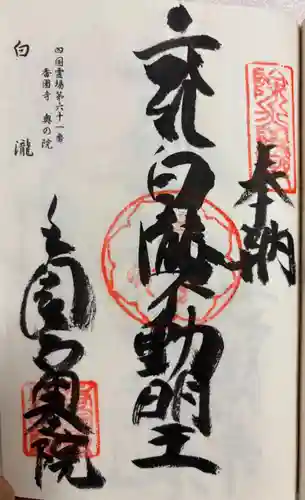 奉納
白瀧不動明王
香園寺奥院
四国霊場第六十一番
香園寺 奥の院
白瀧